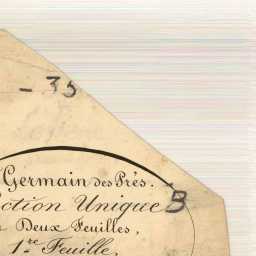 - 35
Germain des Prés.
ction Unique B
Deux Feuilles,
1.re Feuille,